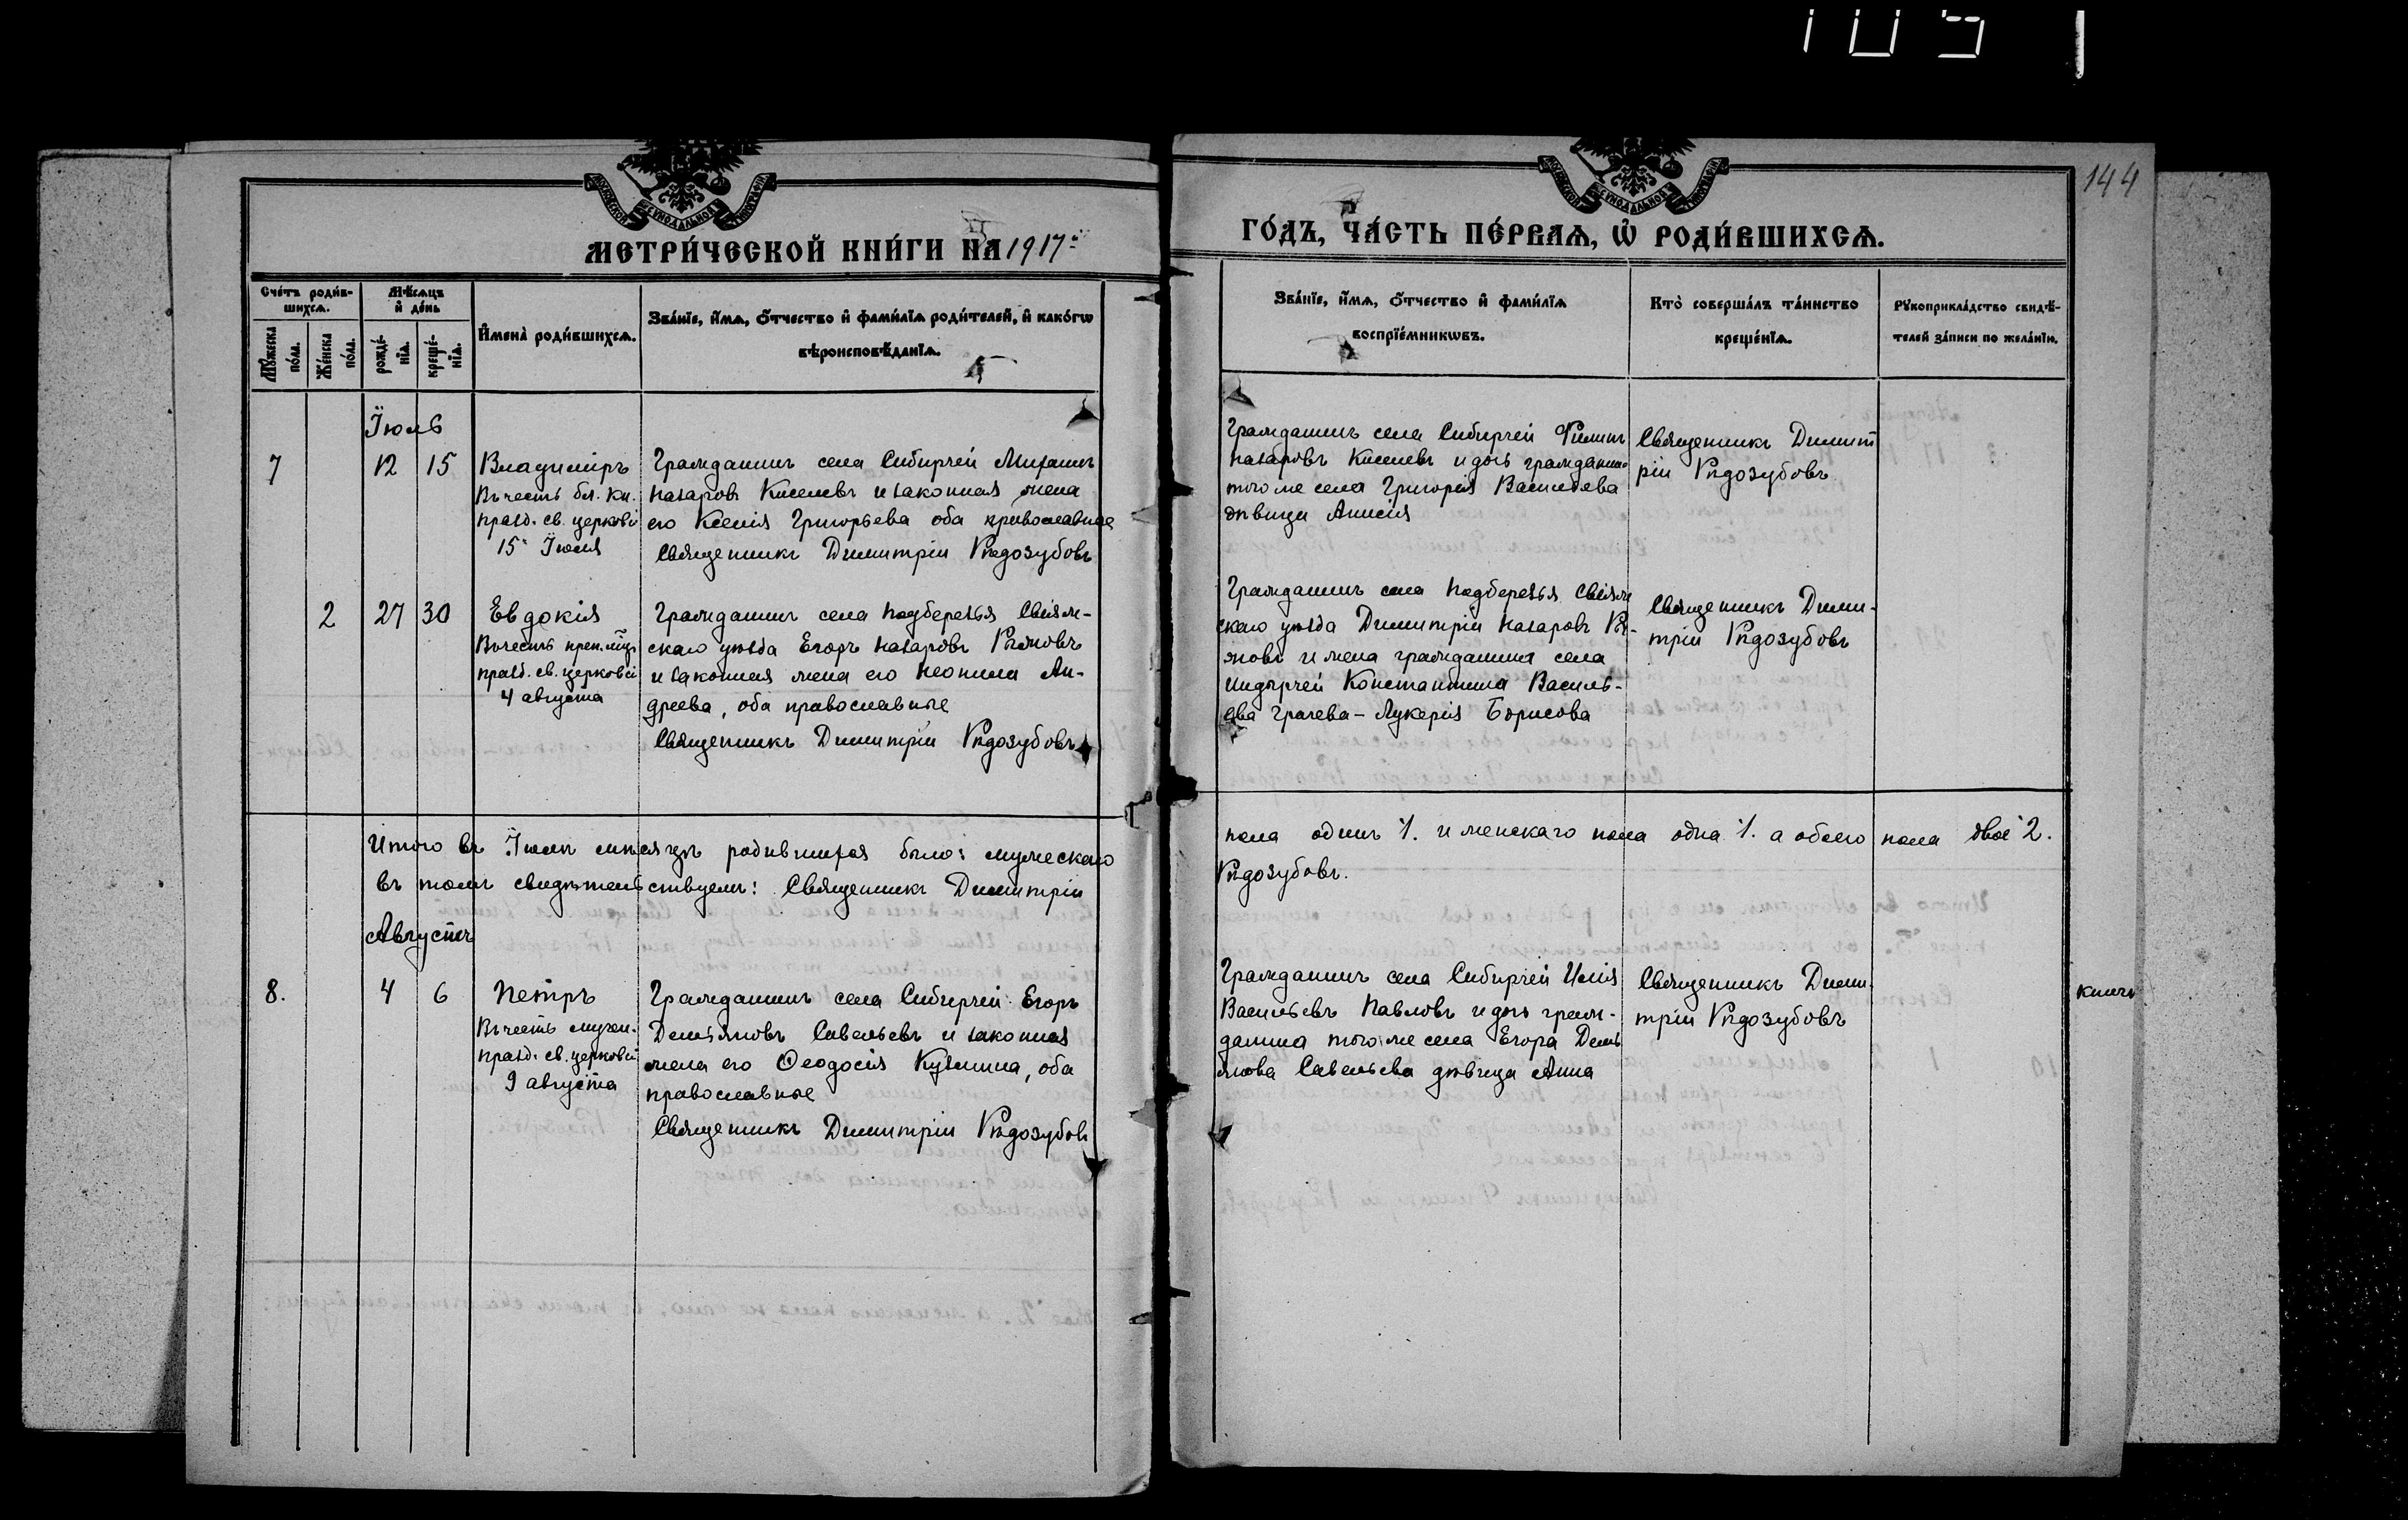 144
МОСКОВСКОЙ СѴНОДАЛЬНОЙ ТИПОГРАФІИ
МОСКОВСКОЙ СѴНОДАЛЬНОЙ ТИПОГРАФІИ
МЕТРИ́ЧЕСКОЙ КНИ́ГИ НА 1917й
ГО́ДЪ, ЧА́СТЬ ПЕ́РВАѦ, Ѡ҆ РОДИ́ВШИХСѦ.
Сче́тъ роди́в-
шихсѧ.
Мѣ́сѧцъ
и҆ де́нь
Мꙋ́жеска
по́ла.
Же́нска
по́ла.
рожде́-
нїѧ.
креще́-
нїѧ.
И҆мена̀ роди́вшихсѧ.
Зва́нїе, и҆́мѧ, ѻ҆́тчество и҆ фами́лїѧ роди́телей, и҆ како́гѡ
вѣроисповѣ́данїѧ.
Зва́нїе, и҆́мѧ, ѻ҆́тчество и҆ фами́лїѧ
воспрїе́мникѡвъ.
Кто̀ соверша́лъ та́инство
креще́нїѧ.
Рꙋкоприкла́дство свидѣ́-
телей за́писи по жела́нїю.
Іюль
7 12 15
Владиміръ
Въ честь бл. кн.
празд. св. церковію
15 Іюля
Гражданинъ села Сибирчей Михаилъ
Назаровъ Киселевъ и законная жена
его Ксенія Григорьева оба православные
Священникъ Димитрій Рѣдозубовъ
Гражданинъ села Сибирчей Филиппъ
Назаровъ Киселевъ и дочь гражданина
того же села Григорія Васильева
дѣвица Анисія
Священникъ Димит
рій Рѣдозубовъ
2 27 30
Евдокія
Въ честь преп. муц.
празд. св. церковію
4 августа
Гражданинъ села Подберезья Свіяж-
скаго уѣзда Егоръ Назаровъ
и законная жена его Неонила Ан-
дреева, оба православные
Священникъ Димитрій Рѣдозубовъ
Гражданинъ села Подберезья Свіяж
скаго уѣзда Димитрій Назаровъ
и жена гражданина села
Индырчей Константина Василь-
ева Грачева - Лукерія Борисова
Священникъ Дими-
трій Рѣдозубовъ
Итого въ Іюлѣ мѣсяцѣ родившихся было: мужескаго
пола одинъ 1. и женскаго пола одна 1. а обоего пола двое 2.
въ томъ свидѣтельствуемъ: Священникъ Димитрій
Рѣдозубовъ.
Августъ
8. 4 6
Петръ
Въ честь мучен.
празд. св. церковію
9 августа
Гражданинъ села Сибирчей Егоръ
Демьяновъ Савельевъ и законная
жена его Ѳеодосія Кузмина, оба
православные
Священникъ Димитрій Рѣдозубовъ
Гражданинъ села Сибирчей Илія
Васильевъ Павловъ и дочь граж-
данина того же села Егора Демь
янова Савельева дѣвица Анна
Священникъ Дими-
трій Рѣдозубовъ